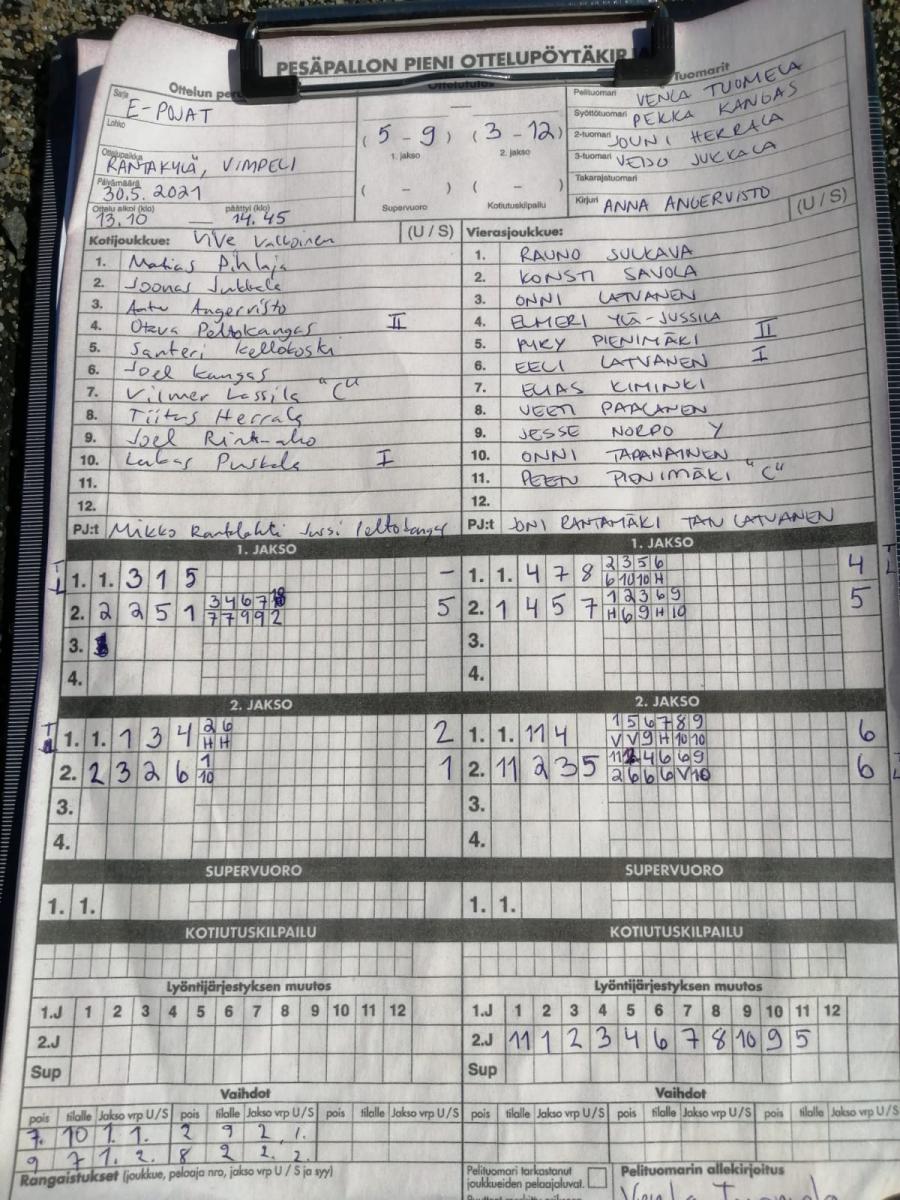 PESÄPALLON PIENI OTTELUPÖYTÄKIR
Sarja E-POJAT
Lohko
Ottelupaikka RANTAKYLÄ, VIMPELI
Päivämäärä 30.5. 2021
Ottelu alkoi (klo) 13.10 — päättyi (klo) 14.45
—
( 5 - 9 ) ( 3 - 12 )
1. jakso 2. jakso
( - ) ( - )
Supervuoro Kotiutuskilpailu
Tuomarit
Pelituomari VENLA TUOMELA
Syöttötuomari PEKKA KANGAS
2-tuomari JOUNI HERRALA
3-tuomari VEIJO JUKKALA
Takarajatuomari
Kirjuri ANNA ANGERVISTO
Kotijoukkue: ViVe Valkoinen (U / S)
1. Matias Pihlaja
2. Joonas Jukkala
3. Anton Angervisto
4. Otava Peltokangas II
5. Santeri Kellokoski
6. Joel Kangas
7. Vilmer Lassila "C"
8. Tiitus Herrala
9. Joel Rinta-aho
10. Lukas Puskala I
11.
12.
PJ:t Mikko Rantalahti Jussi Peltokangas
Vierasjoukkue: (U / S)
1. RAUNO SULKAVA
2. KONSTI SAVOLA
3. ONNI LATVANEN
4. ELMERI YLÄ-JUSSILA
5. PIENIMÄKI II
6. EELI LATVANEN I
7. ELIAS KIMINKI
8. VEETI PAALANEN
9. JESSE NORPO Y
10. ONNI TAPANAINEN
11. PIENIMÄKI "C"
12.
PJ:t JONI RANTAMÄKI LATVANEN
1. JAKSO
1. 1. 3 1 5 –
2. 2 2 5 1 3 4 6 7 5
7 7 9 9 2
3.
4.
1. JAKSO
1. 1. 4 7 8 2 3 5 6 4
6 10 10 H
2. 1 4 5 7 1 2 3 6 9 5
H 6 9 H 10
3.
4.
2. JAKSO
1. 1. 1 3 4 2 6 2
H H
2. 2 3 2 6 1 1
10
3.
4.
2. JAKSO
1. 1. 11 4 1 5 6 7 8 9 6
V V 9 H 10 10
2. 11 2 3 5 11 2 4 6 6 9 6
2 6 6 6 V 10
3.
4.
SUPERVUORO
1. 1.
SUPERVUORO
1. 1.
KOTIUTUSKILPAILU
KOTIUTUSKILPAILU
Lyöntijärjestyksen muutos
1.J 1 2 3 4 5 6 7 8 9 10 11 12
2.J
Sup
Lyöntijärjestyksen muutos
1.J 1 2 3 4 5 6 7 8 9 10 11 12
2.J 11 1 2 3 4 6 7 8 10 9 5
Sup
Vaihdot
pois tilalle Jakso vrp U / S pois tilalle Jakso vrp U / S pois tilalle Jakso vrp U / S
7. 10 1. 1. 2 9 2. 1.
9 7 1. 2. 8 2 2. 2.
Vaihdot
pois tilalle Jakso vrp U / S pois tilalle Jakso vrp U / S pois tilalle Jakso vrp U / S
Rangaistukset (joukkue, pelaaja nro, jakso vrp U / S ja syy)
Pelituomari tarkastanut
joukkueiden pelaajaluvat.
Pelituomarin allekirjoitus